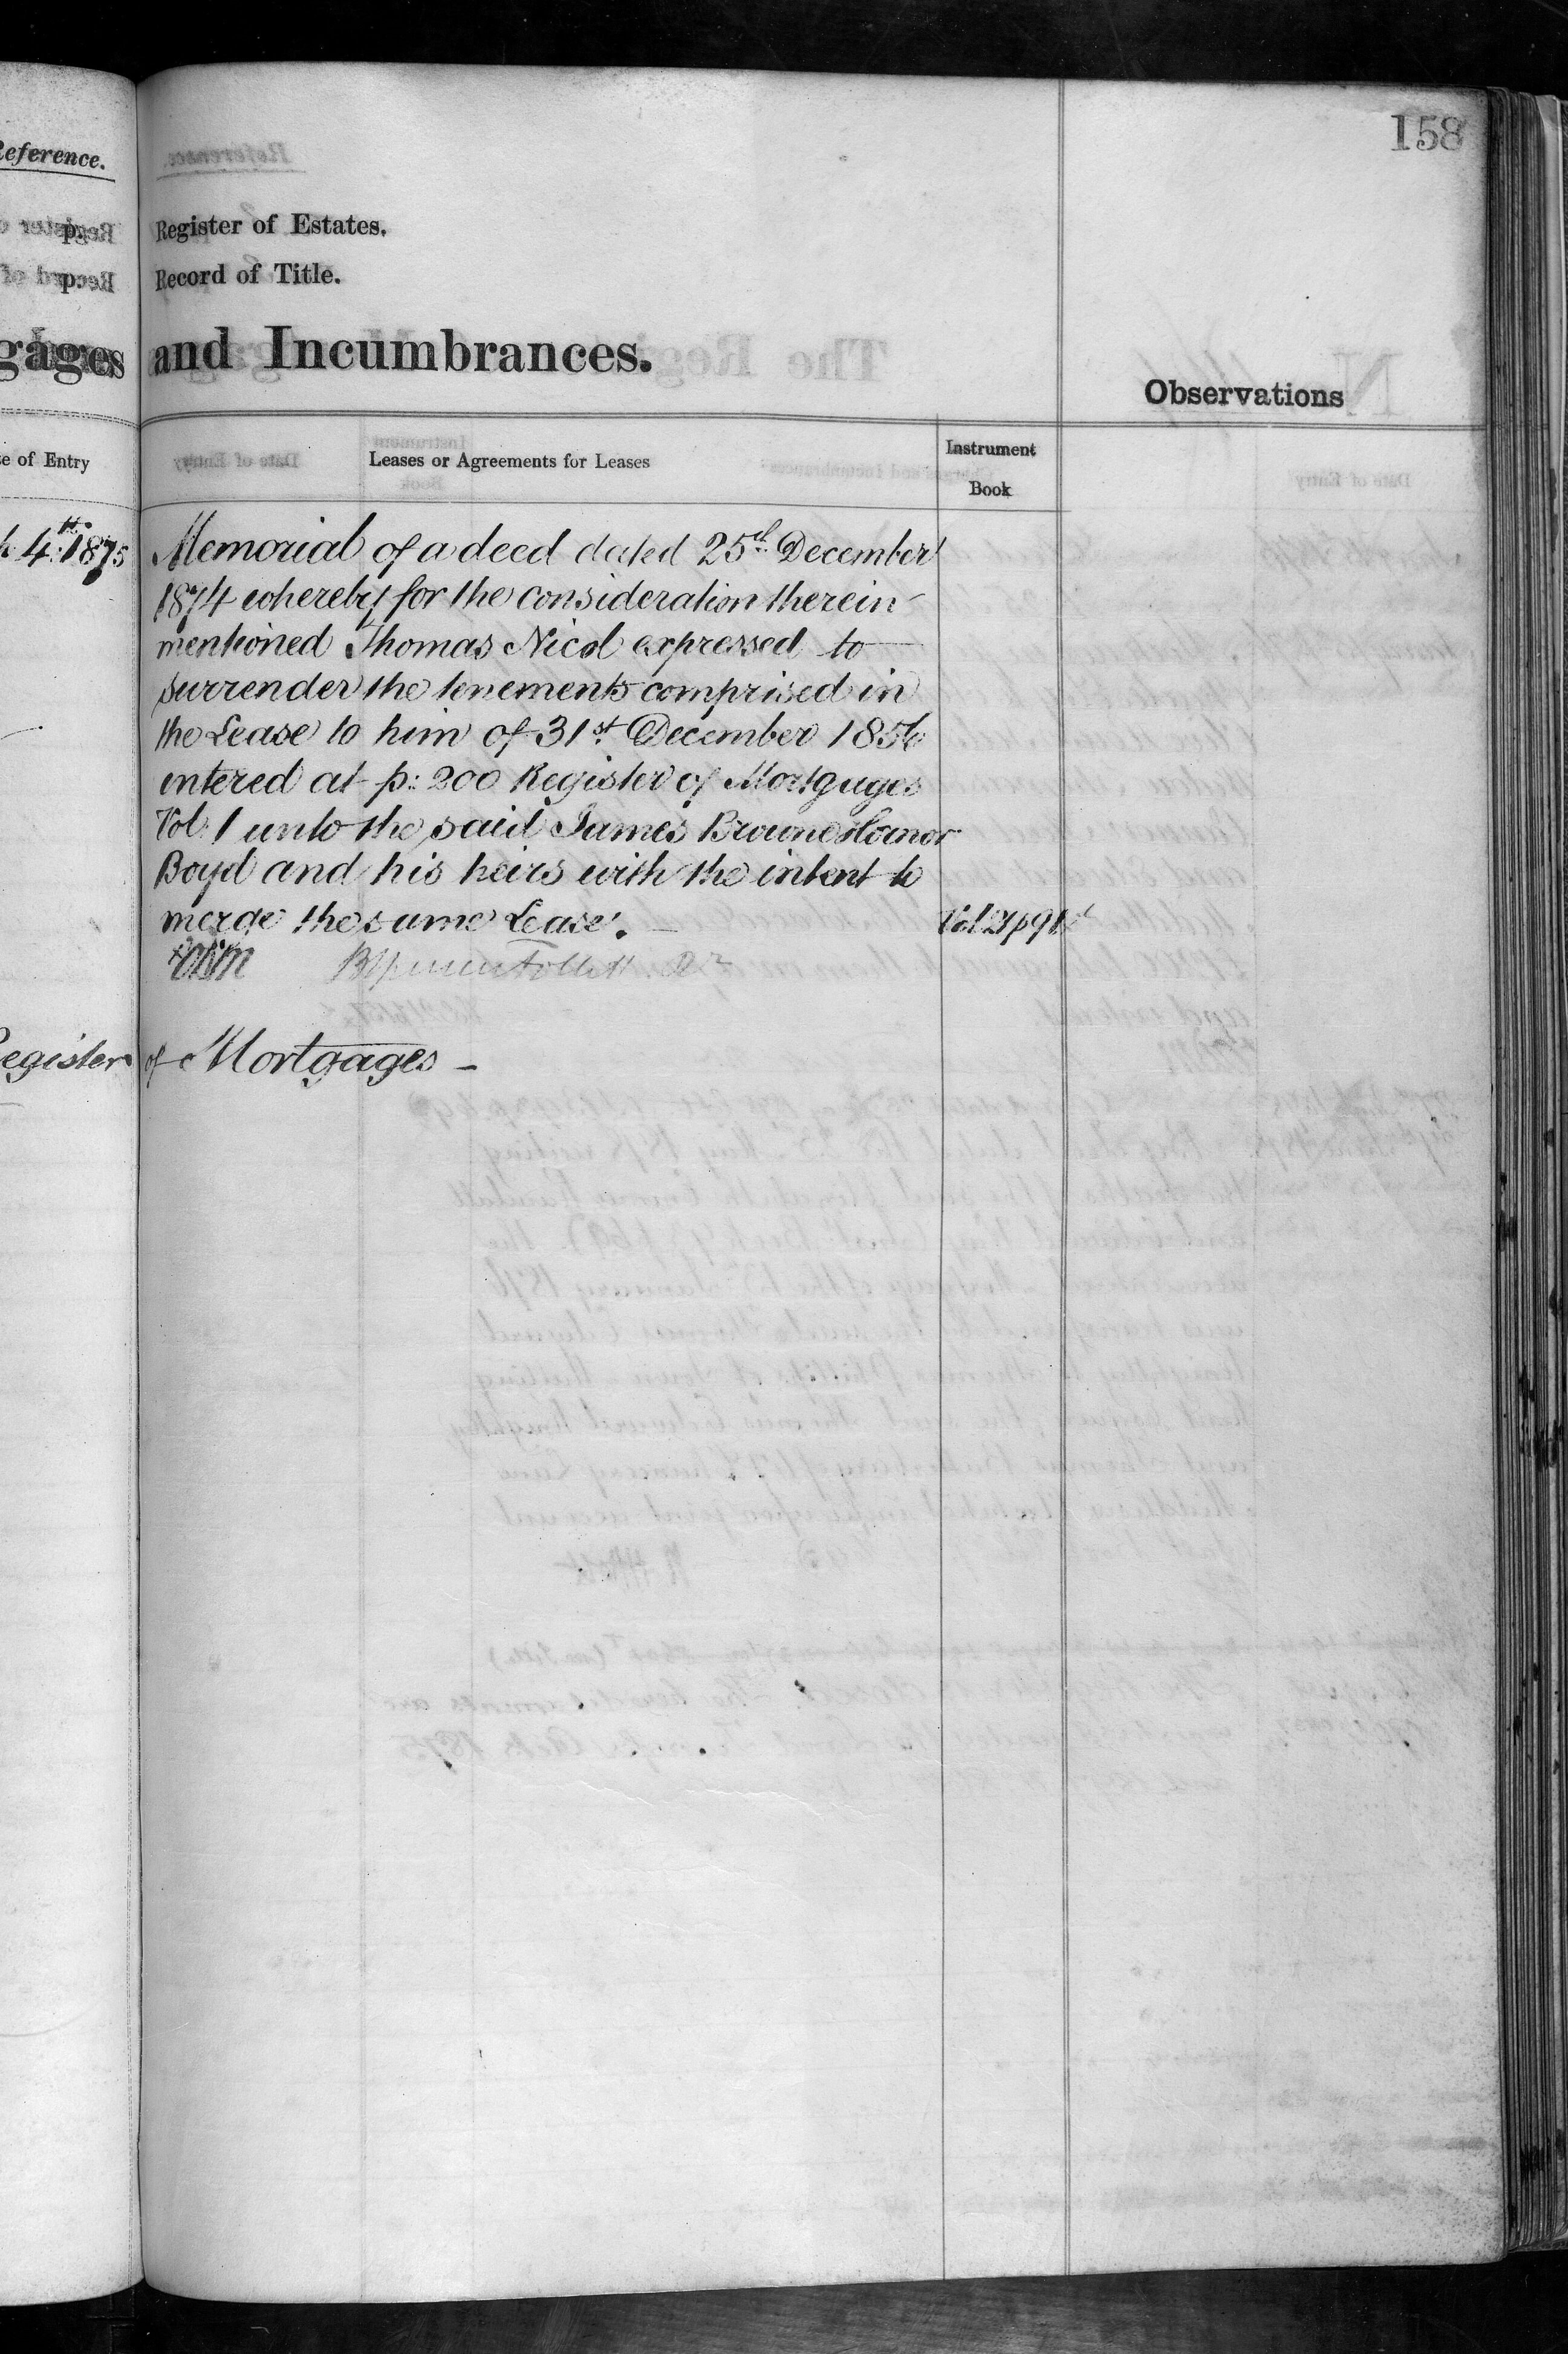 158
Reference.
Register of Estates.
Record of Title.
gages and Incumbrances.
Observations
te of Entry
Leases or Agreements for Leases
Instrument
Book
4th 1875
Memorial of a deed dated 25th December
1874 whereby for the consideration therein
mentioned Thomas Nicol expressed to
surrender the tenements comprised in
the Lease to him of 31st December 1856
entered at p: 200 Register of Mortgages
Vol: 1 unto the said James Browne
Boyd and his heirs with the intent to
merge the same Lease.
Vol 21 p 91
Register of Mortgages -